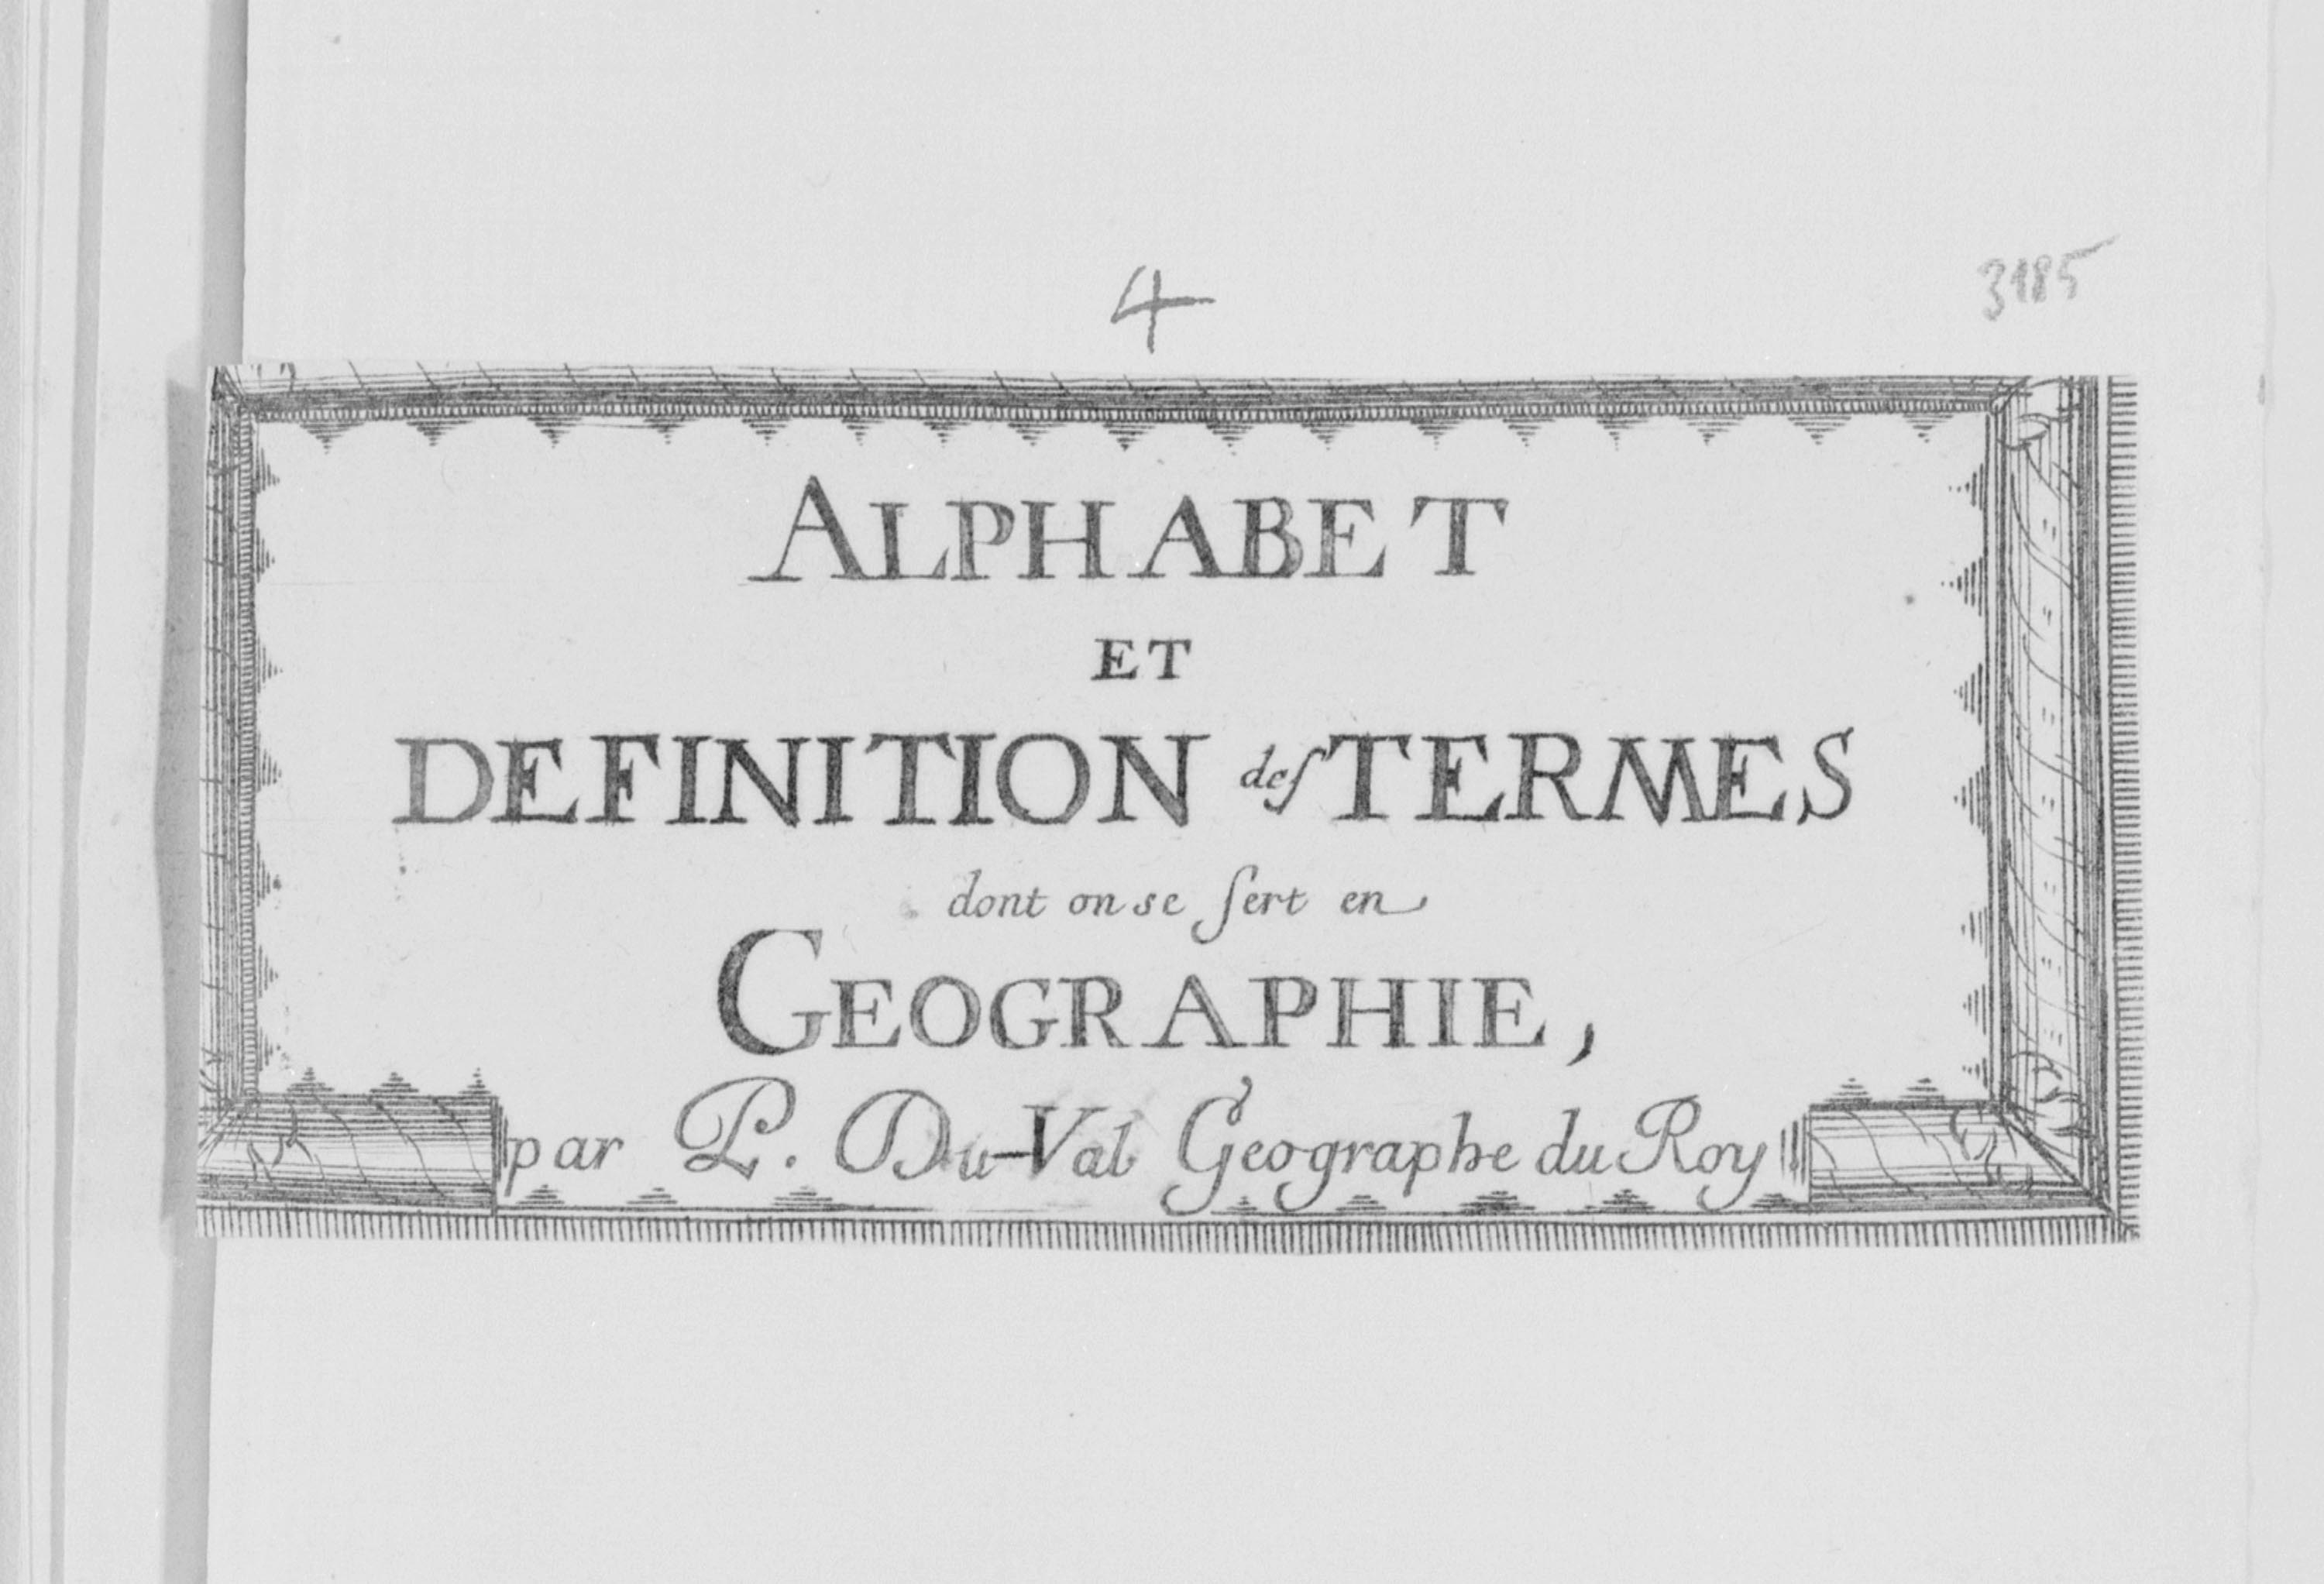 4
3185
ALPHABET
ET
DEFINITION deſ TERMES
dont on se ſert en
GEOGRAPHIE,
par P. Du-Val Geographe du Roy